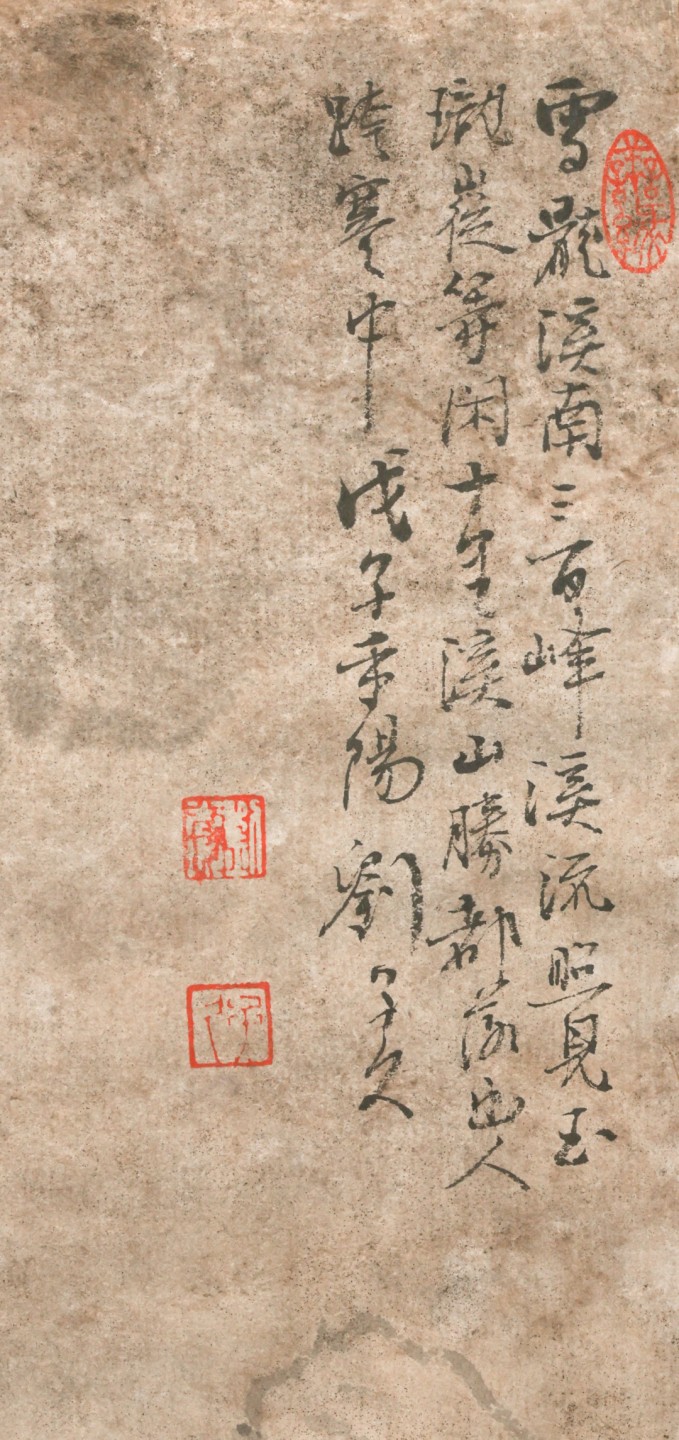 雪龍溪南三百峰溪流照見玉
瓏嵷等閑十里溪山勝都落山人
跨蹇中 戊子重陽 劉子久